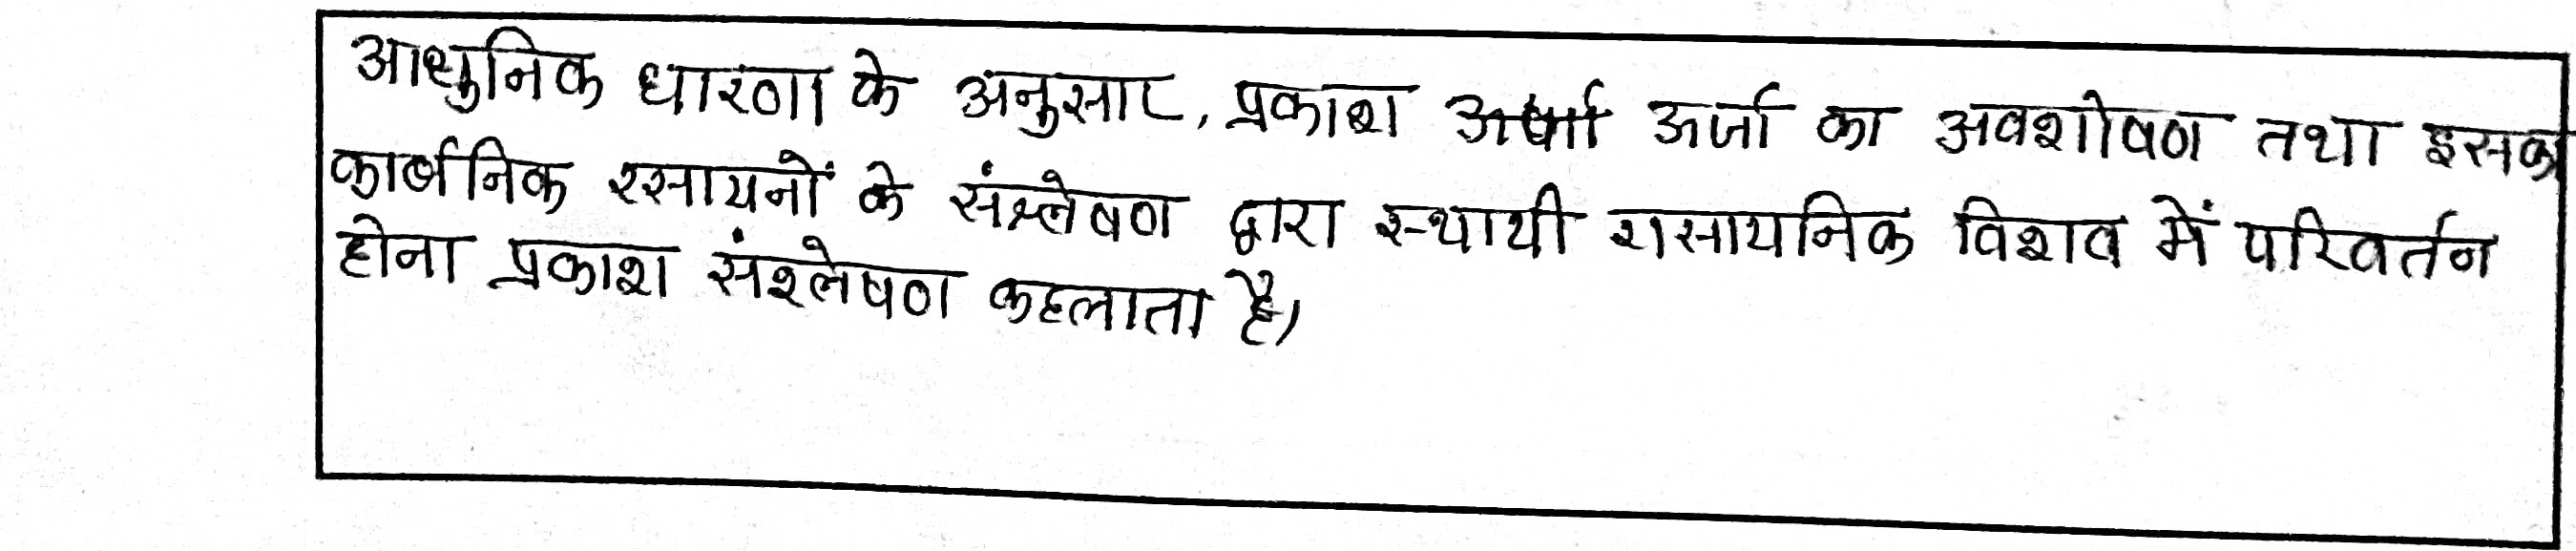 आधुनिक धारणा के अनुसार, प्रकाश ऊर्जा का अवशोषण तथा इसका
कार्बनिक रसायनों के संश्लेषण द्वारा स्थायी रासायनिक विशव में परिवर्तन
होना प्रकाश संश्लेषण कहलाता है।